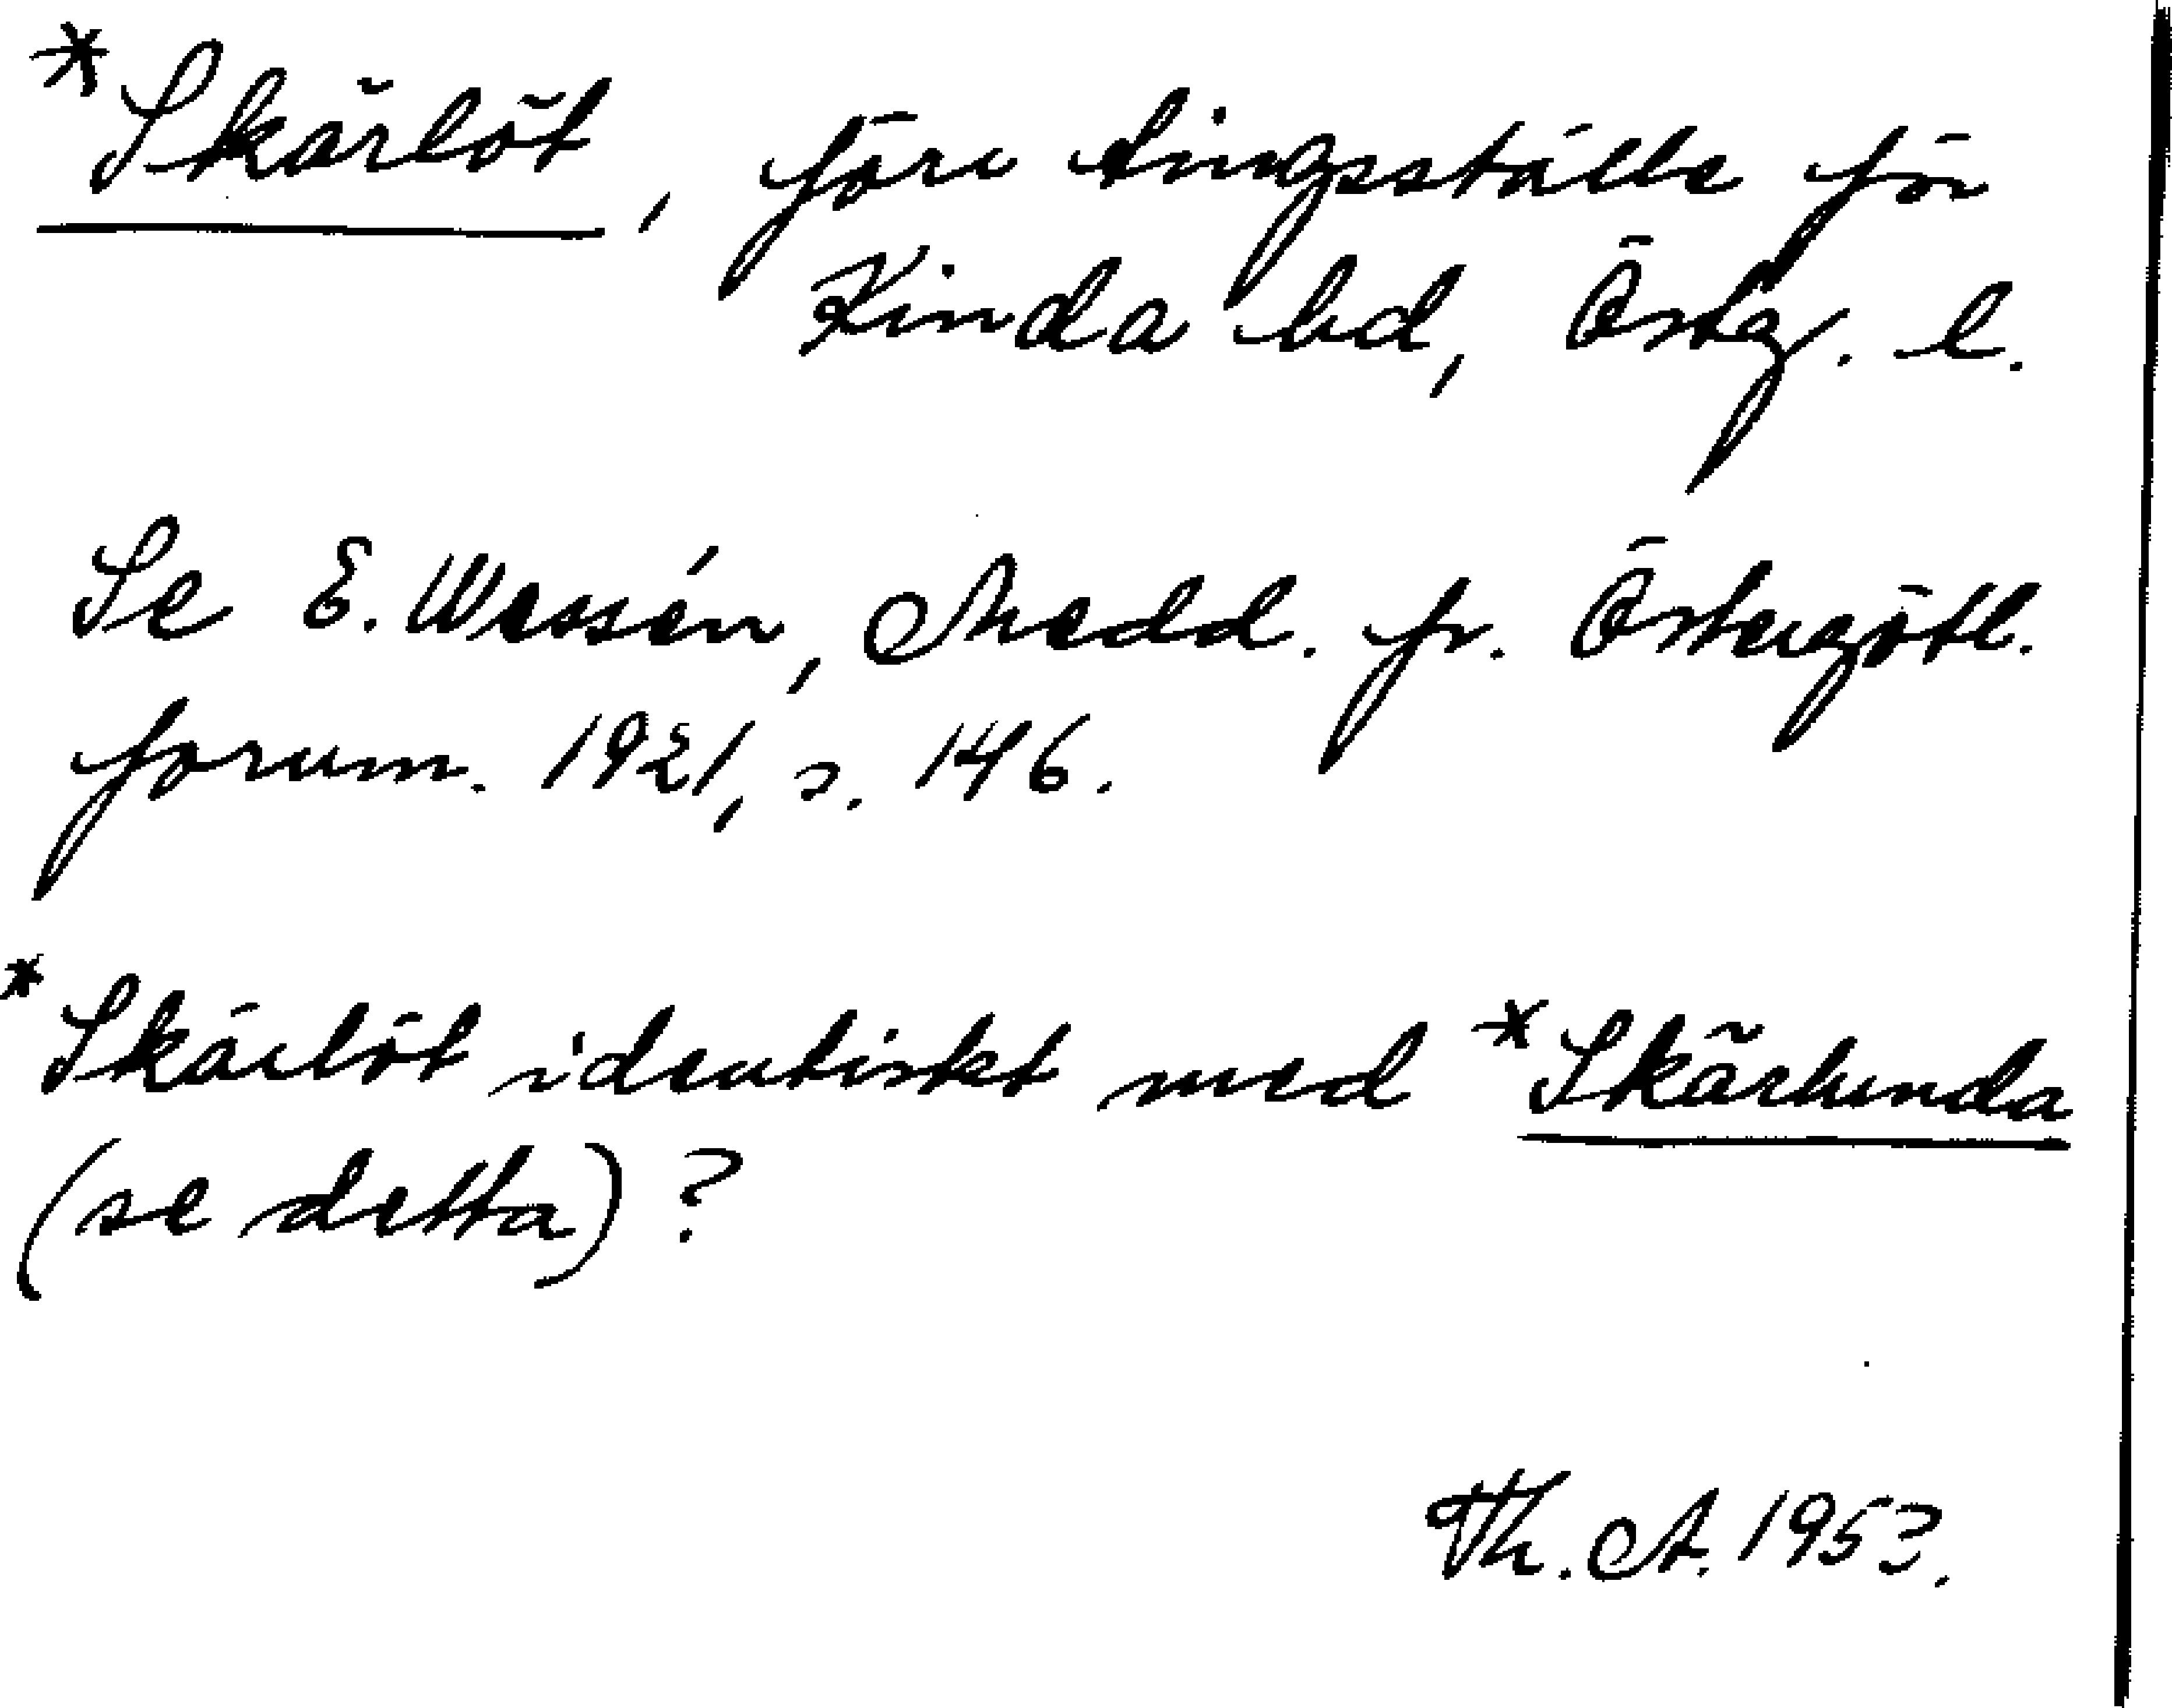 *Skärlöt, förr tingsställe för
Kinda hd, Östg. l.
Se E. Wessén, Medd. fr. Östergötl.
fornm. 1921, s. 146.
*Skärlöt identiskt med *Skärlunda
(se detta)?
Th. A. 1953.